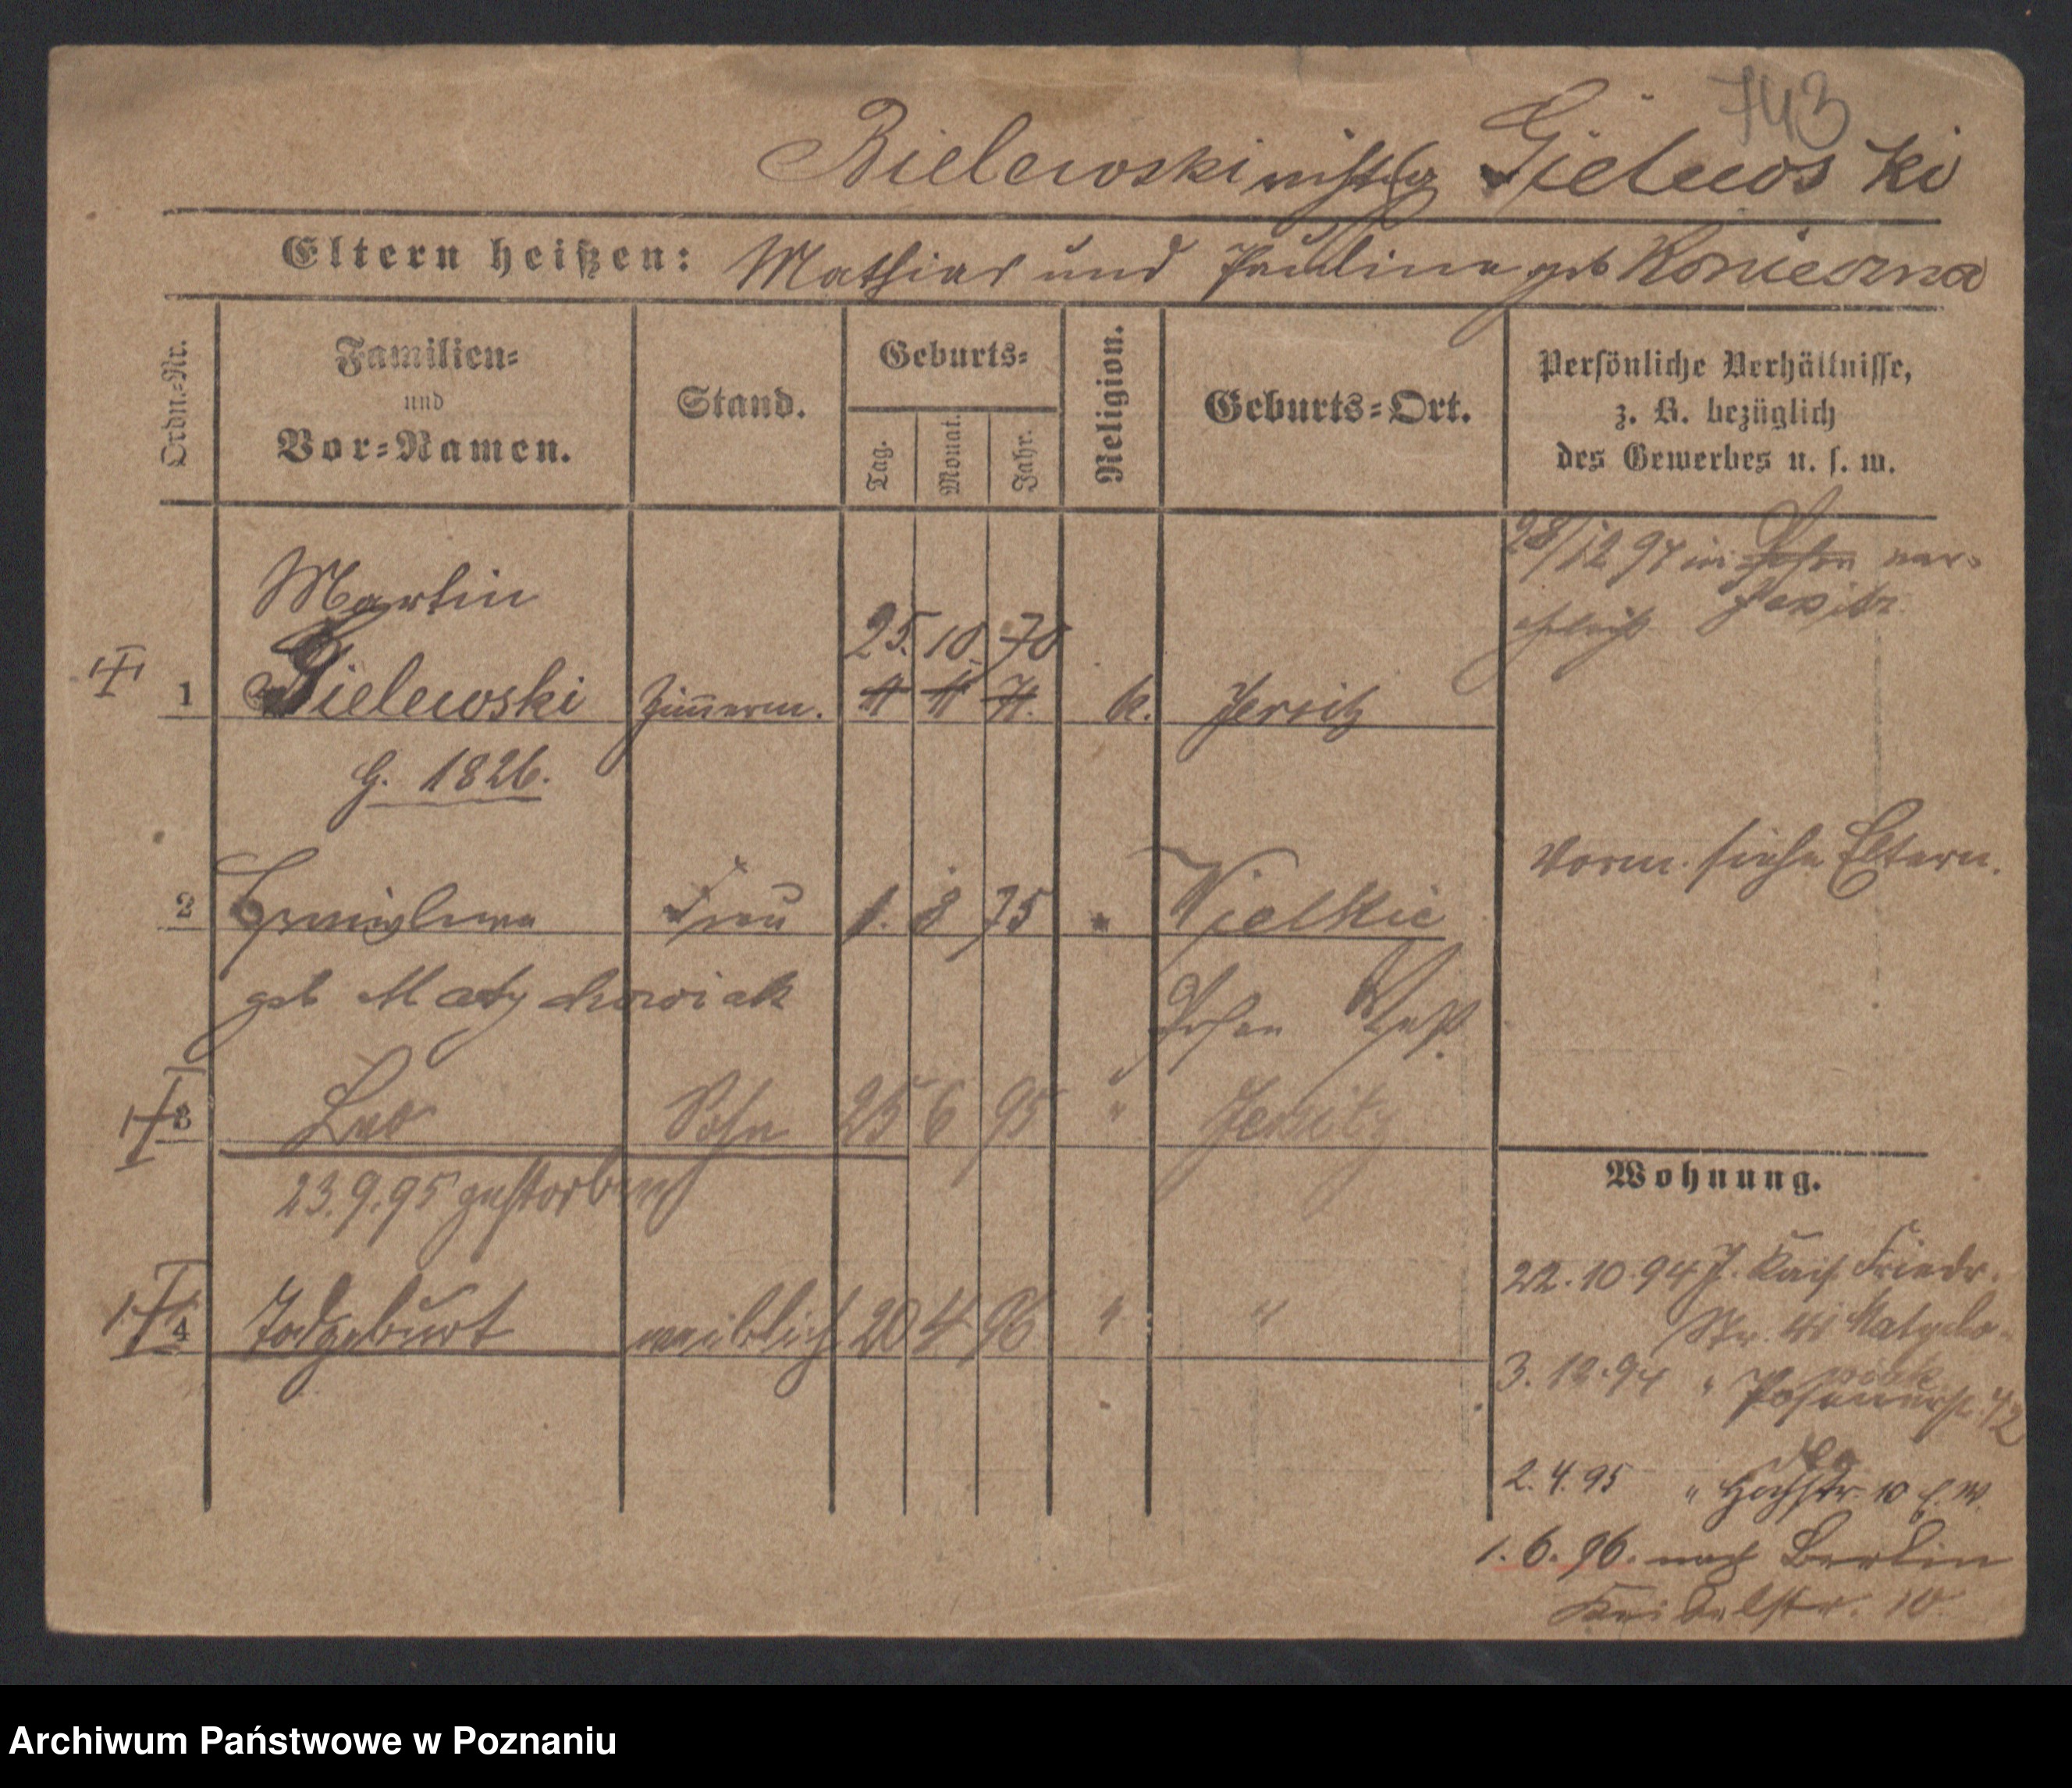 743
Bielewski richtig Gielewski
Eltern heißen: Mathias und Paulina geb Konieczna
Ordn.-Nr.
Familien-
und
Vor-Namen.
Stand.
Geburts-
Tag.
Monat.
Jahr.
Religion.
Geburts-Ort.
Persönliche Verhältnisse,
z. B. bezüglich
des Gewerbes u. s. w.
28/12 94 in Posen ver-
ehelicht Jersitz
Martin
25. 10. 70
1 Gielewski Zimmerm. 11 11 71. k. Jersitz
G. 1826.
Vorm. siehe Eltern.
2 Frau 1. 8 75 " Wielkie
geb Matychowiak Posen West
3 Leo Sohn 25 6 95 " Jersitz
23.9.95 gestorben
4 Todgeburt weiblich 20 4 96 " "
Wohnung.
22.10.94 J. Kais. Friedr.
Str. 41 Matycho-
wiak
3.12.94 " Posenerstr. 42
2.4.95 " Hochstr. 10 b. W.
1.6.96. nach Berlin
10
Archiwum Państwowe w Poznaniu